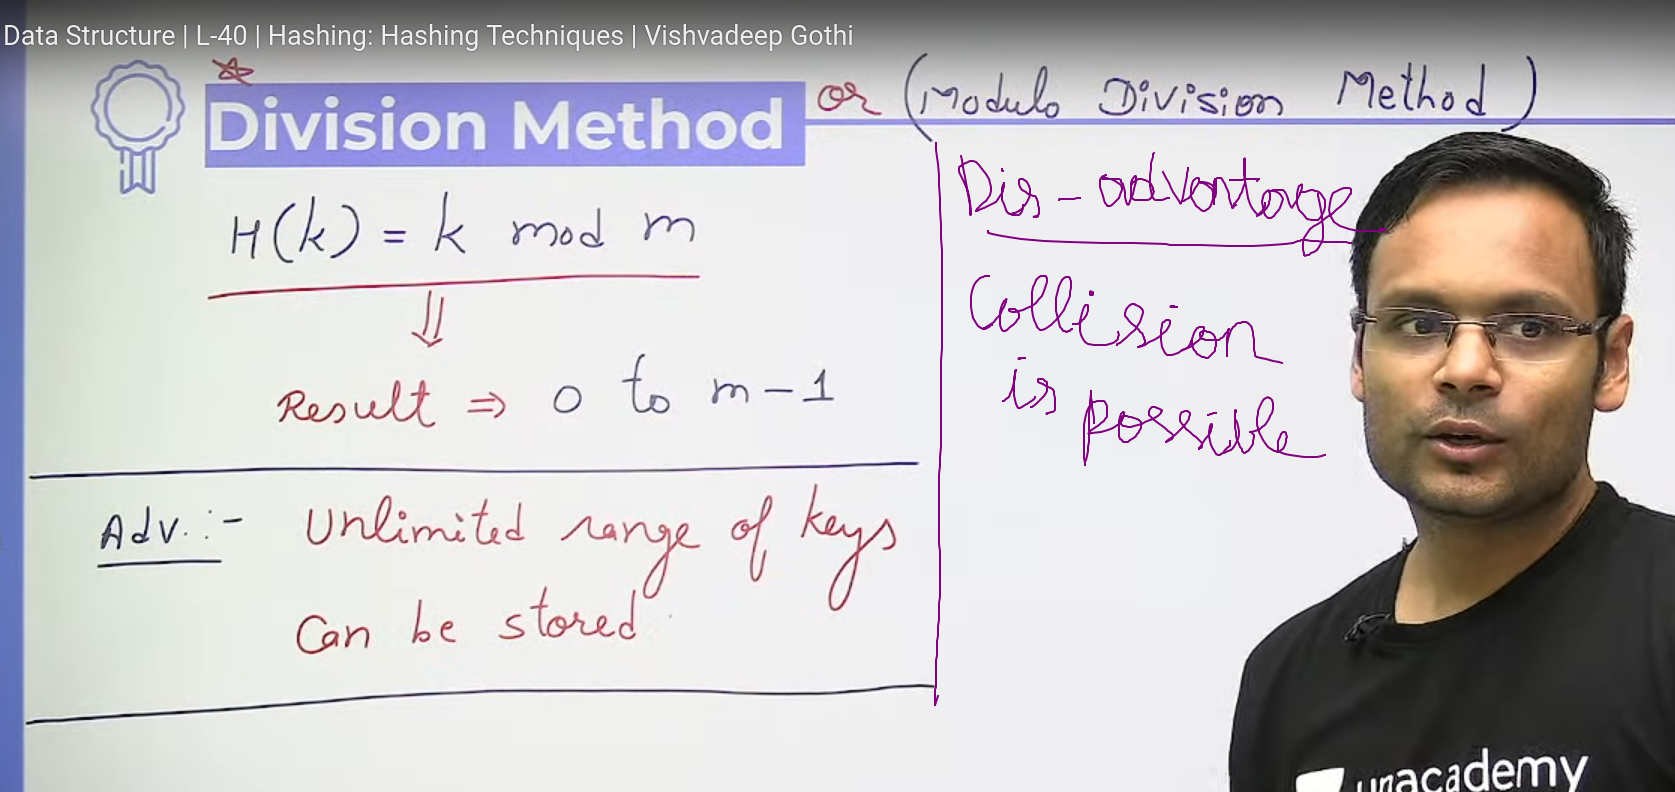 Data Structure | L-40 | Hashing: Hashing Techniques | Vishvadeep Gothi
Division Method or (Modulo Division Method)
H(k) = k mod m
⇓
Result ⇒ 0 to m-1
Adv.:- Unlimited range of keys
Can be stored
Dis-advantage
Collision
is
possible
unacademy